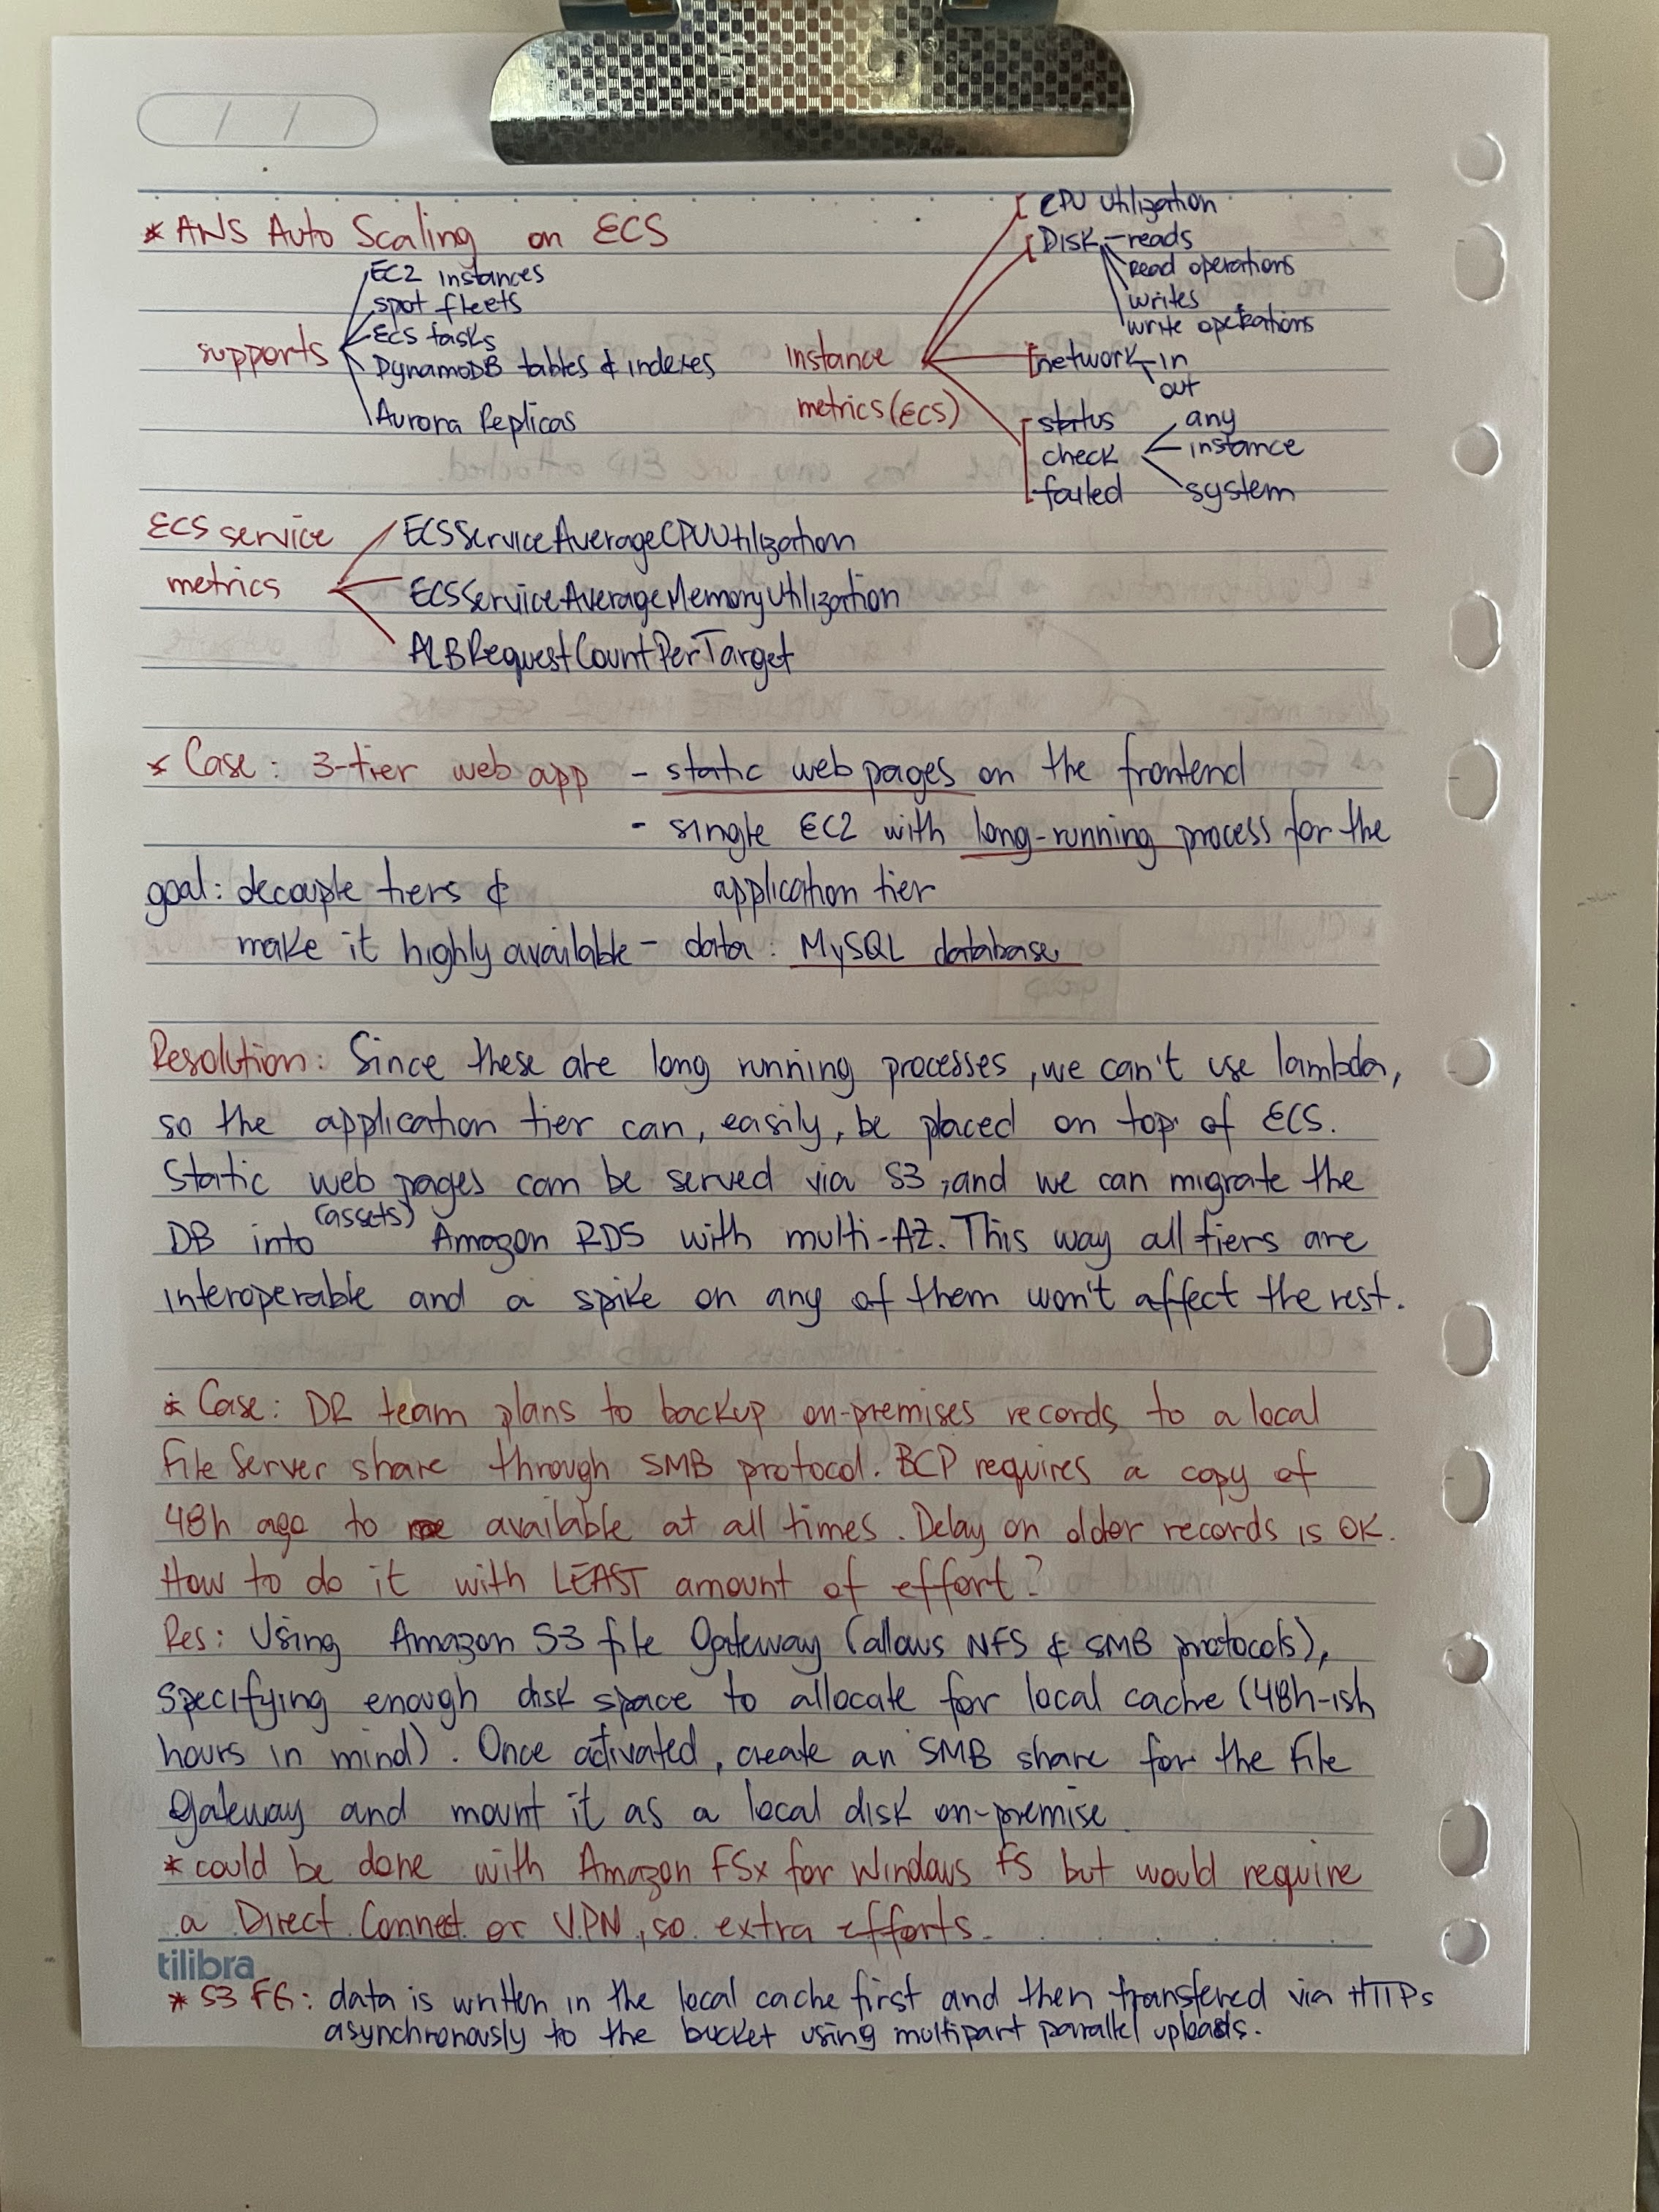 / /
* AWS Auto Scaling on ECS
supports
EC2 instances
spot fleets
ECS tasks
DynamoDB tables & indexes
Aurora Replicas
instance
metrics (ECS)
CPU Utilization
Disk - reads
read operations
writes
write operations
network - in
out
status
check
failed
any
instance
system
ECS service
metrics
ECSServiceAverageCPUUtilization
ECSServiceAverageMemoryUtilization
ALBRequestCountPerTarget
* Case: 3-tier web app - static web pages on the frontend
- single EC2 with long-running process for the
goal: decouple tiers & application tier
make it highly available - data: MySQL database
Resolution: Since these are long running processes, we can't use lambda,
so the application tier can, easily, be placed on top of ECS.
Static web pages can be served via S3, and we can migrate the
(assets)
DB into Amazon RDS with multi-AZ. This way all tiers are
interoperable and a spike on any of them won't affect the rest.
* Case: DR team plans to backup on-premises records to a local
file server share through SMB protocol. BCP requires a copy of
48h ago to available at all times. Delay on older records is OK.
How to do it with LEAST amount of effort?
Res: Using Amazon S3 file Gateway (allows NFS & SMB protocols),
specifying enough disk space to allocate for local cache (48h-ish
hours in mind). Once activated, create an SMB share for the file
gateway and mount it as a local disk on-premise.
* could be done with Amazon FSx for Windows FS but would require
a Direct Connect or VPN, so extra efforts.
tilibra
* S3 FG: data is written in the local cache first and then transfered via HTTPs
asynchronously to the bucket using multipart parallel uploads.